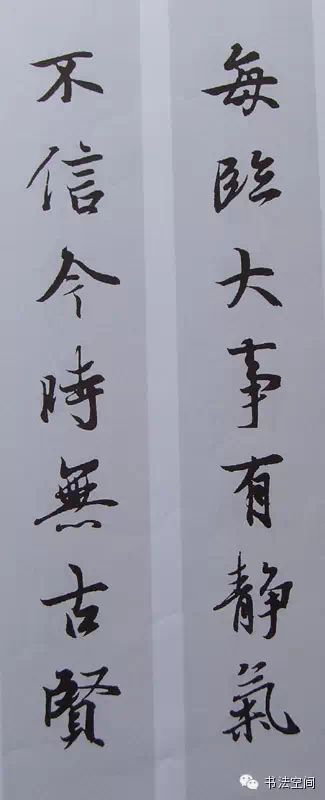 每臨大事有静氣
不信今時無古賢
书法空间